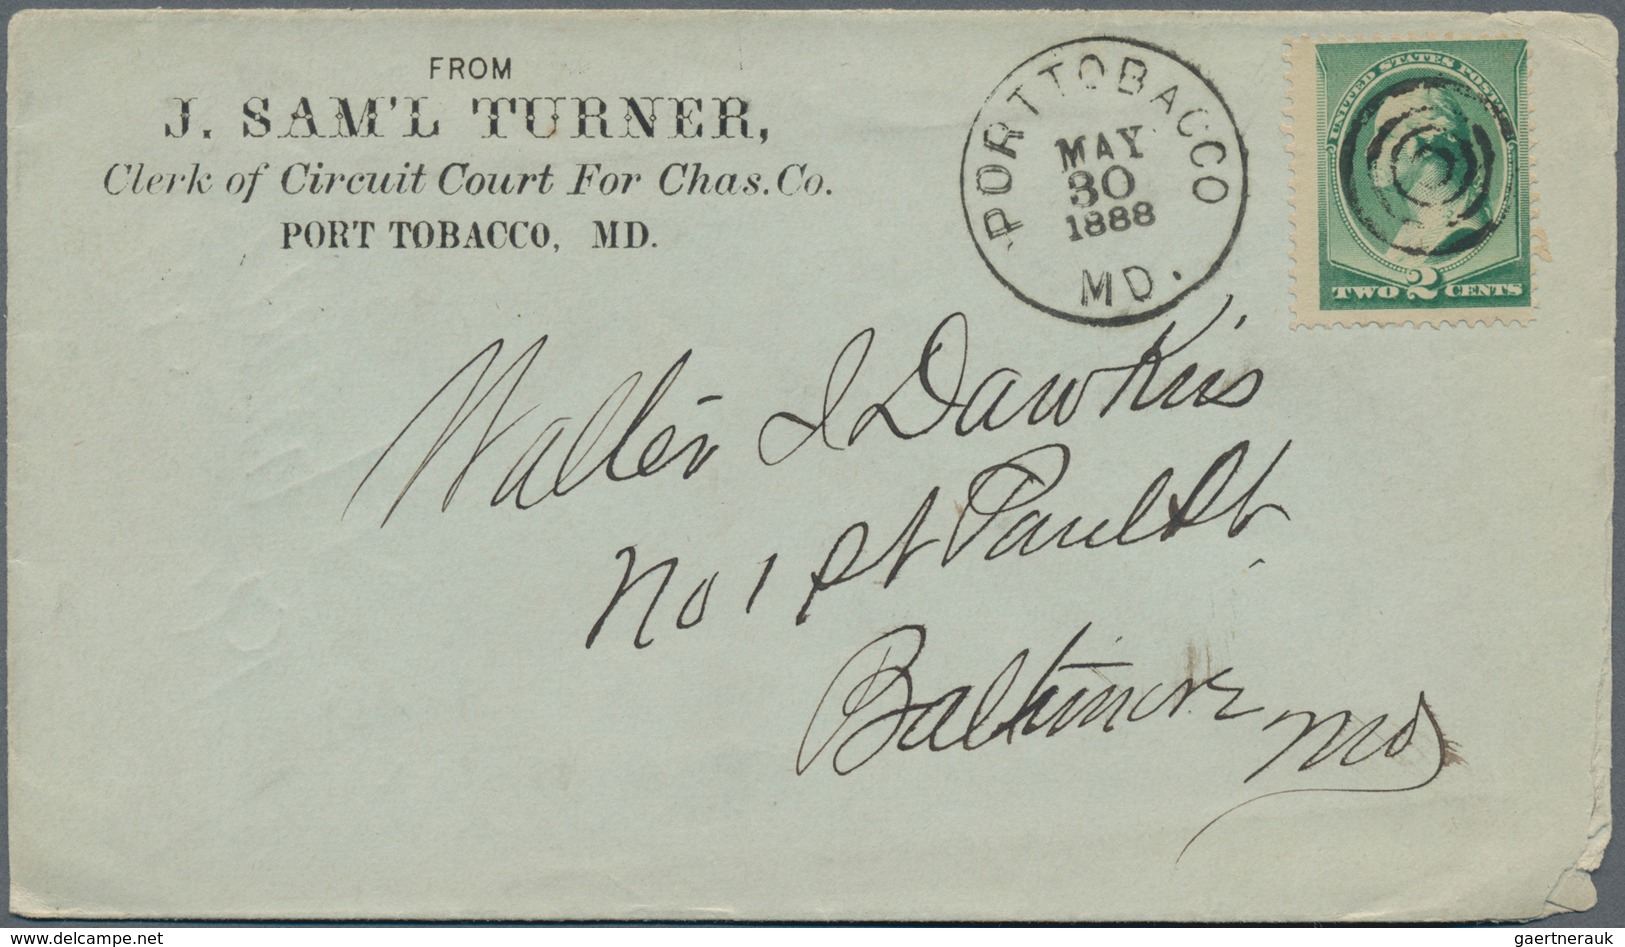 FROM
J. SAM'L TURNER,
Clerk of Circuit Court For Chas. Co.
PORT TOBACCO, MD.
PORT TOBACCO
MAY
30
1888
MD.
UNITED STATES POSTAGE
TWO 2 CENTS
Walter I Dawkins
No 1 St Paul St
Baltimore
Md
delcampe.net
gaertnerauk